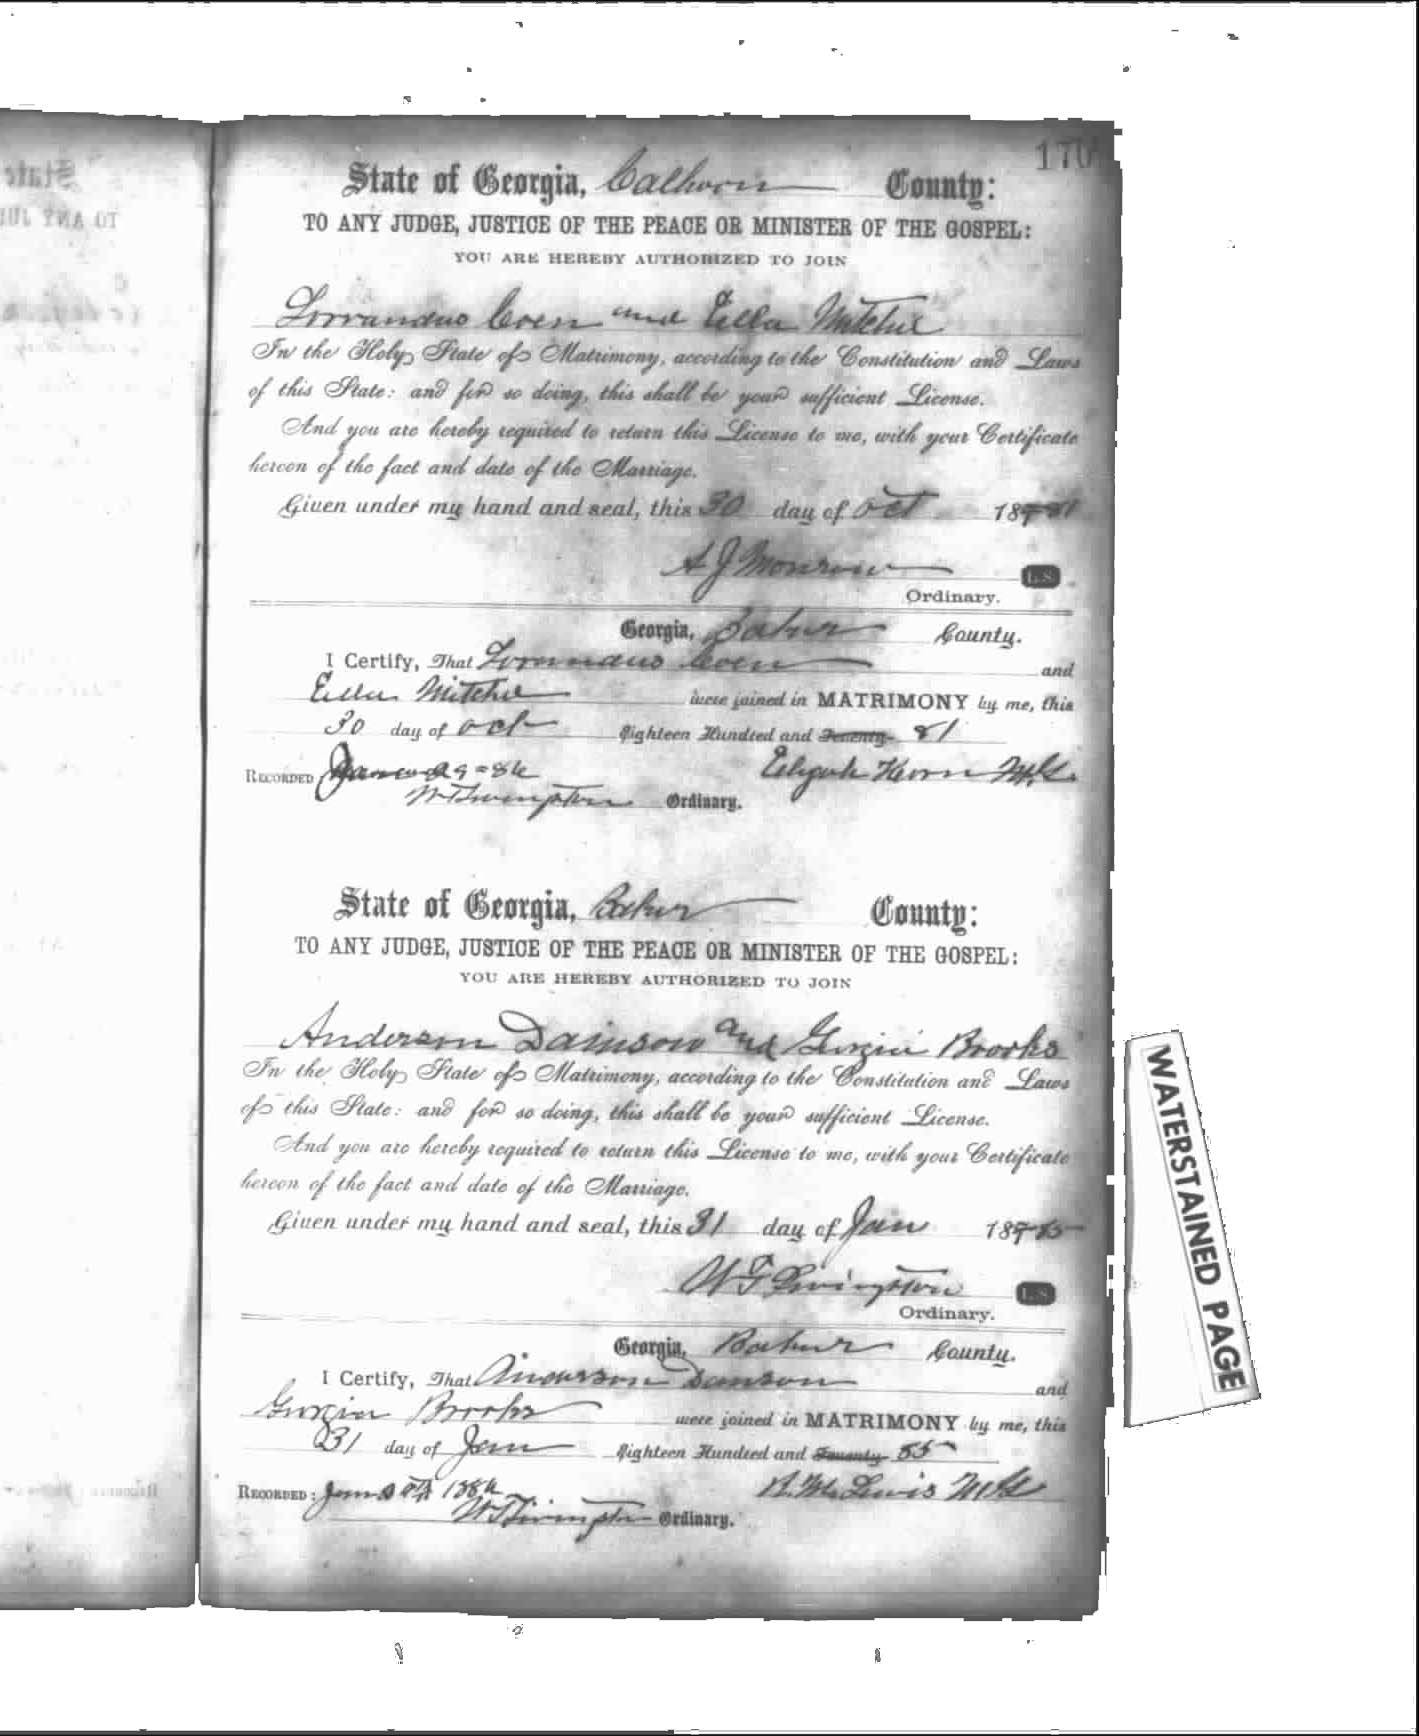 170
State of Georgia, Calhoun County:
TO ANY JUDGE, JUSTICE OF THE PEACE OR MINISTER OF THE GOSPEL:
YOU ARE HEREBY AUTHORIZED TO JOIN
Coen and Ella Mitchel
In the Holy State of Matrimony, according to the Constitution and Laws
of this State: and for so doing, this shall be your sufficient License.
And you are hereby required to return this License to me, with your Certificate
hereon of the fact and date of the Marriage.
Given under my hand and seal, this 30 day of Oct 18 81
A J Monroe L.S.
Ordinary.
Georgia, Baker County.
I Certify, That Coen and
Ella Mitchel were joined in MATRIMONY by me, this
30 day of Oct Eighteen Hundred and Seventy 81
RECORDED Elijah M.G.
Ordinary.
State of Georgia, Baker County:
TO ANY JUDGE, JUSTICE OF THE PEACE OR MINISTER OF THE GOSPEL:
YOU ARE HEREBY AUTHORIZED TO JOIN
Anderson Dawson and Georgia Brooks
In the Holy State of Matrimony, according to the Constitution and Laws
of this State: and for so doing, this shall be your sufficient License.
And you are hereby required to return this License to me, with your Certificate
hereon of the fact and date of the Marriage.
Given under my hand and seal, this 31 day of Jan 18 85
W T Livingston L.S.
Ordinary.
Georgia, Baker County.
I Certify, That Anderson Dawson and
Georgia Brooks were joined in MATRIMONY by me, this
31 day of Jan Eighteen Hundred and Seventy 85
RECORDED: Jan 1886 Lewis M.G.
W T Livingston Ordinary.
WATERSTAINED PAGE